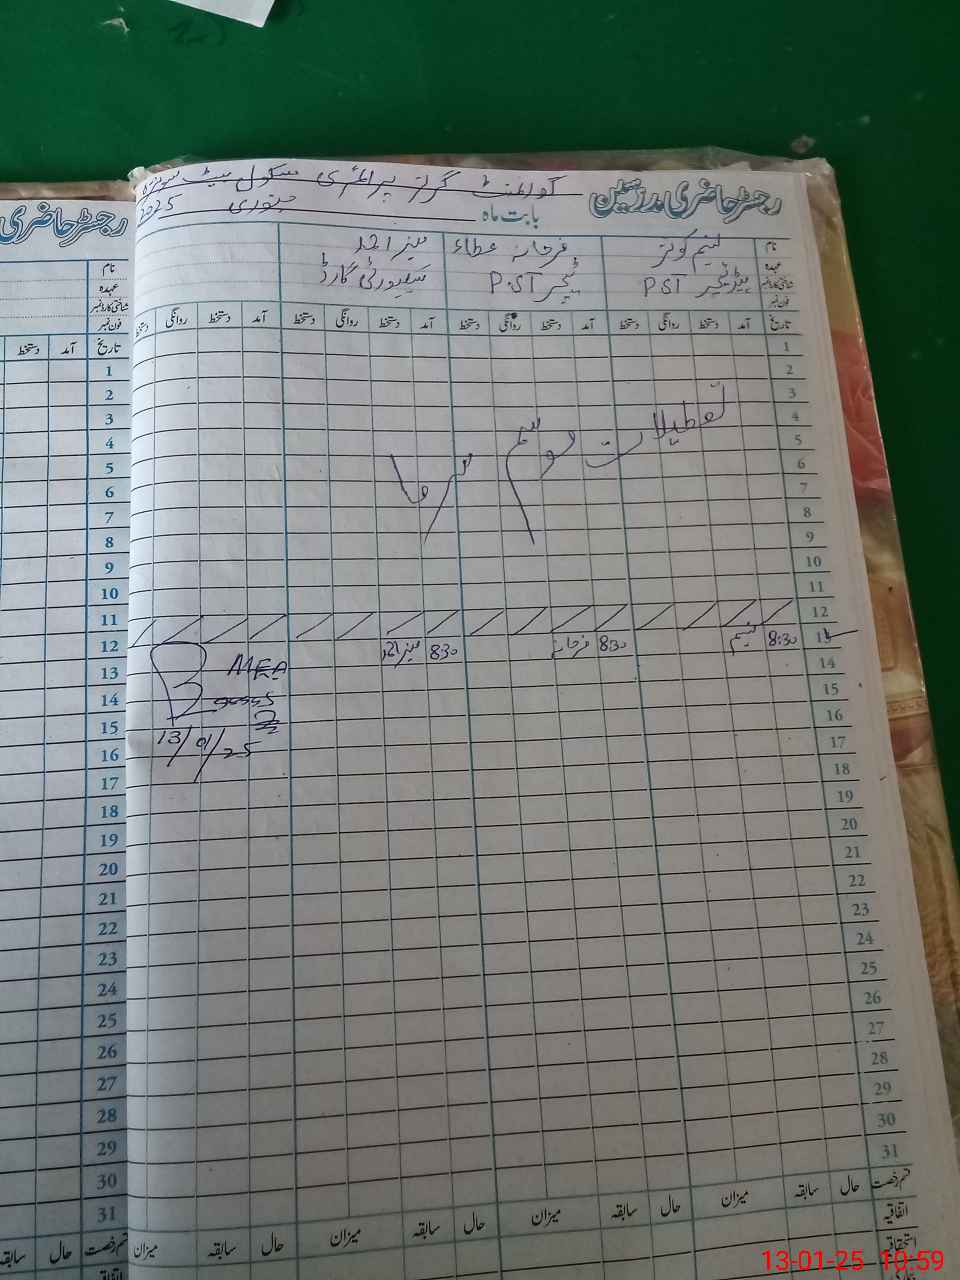 رجسٹر حاضری مدرسین
گورنمنٹ گرلز پرائمری سکول
بابت ماہ جنوری 2025
نام
فرحانہ عطاء
عہدہ
ہیڈ ٹیچر P.S.T
ٹیچر P.S.T
سیکیورٹی گارڈ
شناختی کارڈ نمبر
فون نمبر
تاریخ آمد دستخط روانگی دستخط آمد دستخط روانگی دستخط آمد دستخط روانگی دستخط آمد دستخط روانگی دستخط
1
2
3
تعطیلات موسم سرما
4
5
6
7
8
9
10
11
12
13 8:30 نسیم 8:30 فرحانہ 8:30
14
15
16
17
18
19
20
21
22
23
24
25
26
27
28
29
30
31
MEA
13/01/25
قسم رخصت حال سابقہ میزان حال سابقہ میزان حال سابقہ میزان حال سابقہ میزان
اتفاقیہ
استحقاقیہ
رجسٹر حاضری
نام
عہدہ
شناختی کارڈ نمبر
فون نمبر
تاریخ آمد دستخط
1
2
3
4
5
6
7
8
9
10
11
12
13
14
15
16
17
18
19
20
21
22
23
24
25
26
27
28
29
30
31
قسم رخصت حال سابقہ
اتفاقیہ
13-01-25 10:59